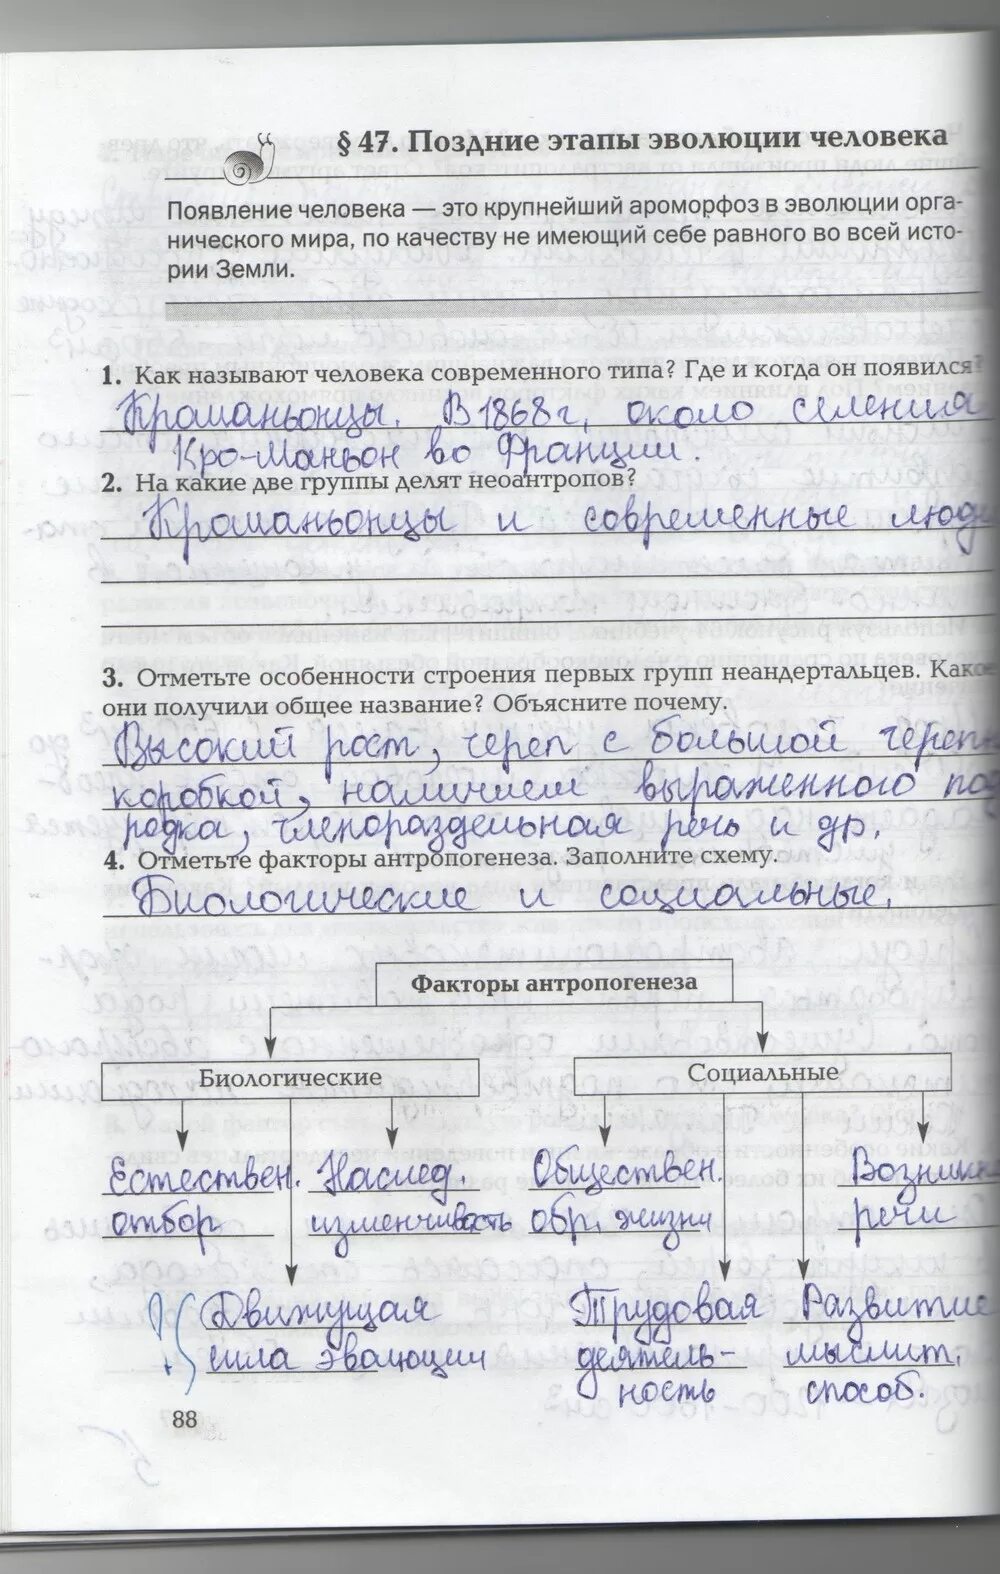 § 47. Поздние этапы эволюции человека
Появление человека — это крупнейший ароморфоз в эволюции орга-
нического мира, по качеству не имеющий себе равного во всей исто-
рии Земли.
1. Как называют человека современного типа? Где и когда он появился?
Кроманьонцы. В 1868 г, около селения
Кро-Маньон во Франции.
2. На какие две группы делят неоантропов?
Кроманьонцы и современные люди
3. Отметьте особенности строения первых групп неандертальцев. Какое
они получили общее название? Объясните почему.
Высокий рост, череп с большой череп
коробкой, наличием выраженного под
родка, членораздельная речь и др.
4. Отметьте факторы антропогенеза. Заполните схему.
Биологические и социальные.
Факторы антропогенеза
Биологические Социальные
Естествен. Наслед. Обществен. Возникн
отбор изменчивость обр. жизни речи
Движущая Трудовая Развитие
сила эволюции деятель- мыслит.
ность способ.
88